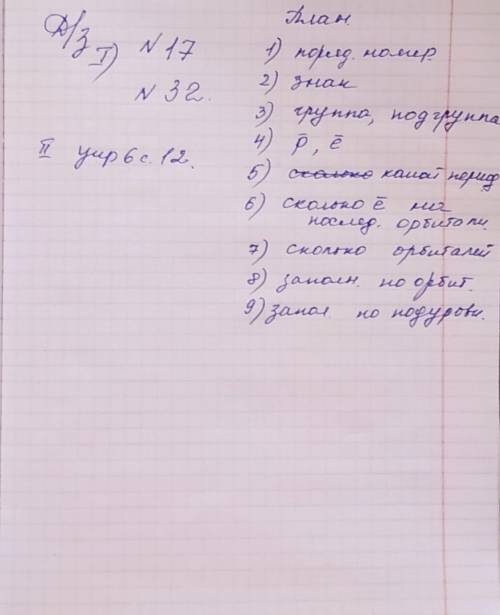 Д/з I) N 17
N 32.
II упр 6 с. 12.
План
1) поряд. номер.
2) знак
3) группа, подгруппа
4) p̄, ē
5) сколько какой период
6) сколько ē на
послед. орбитали.
7) сколько орбиталей
8) заполн. по орбит.
9) запол по подуровн.